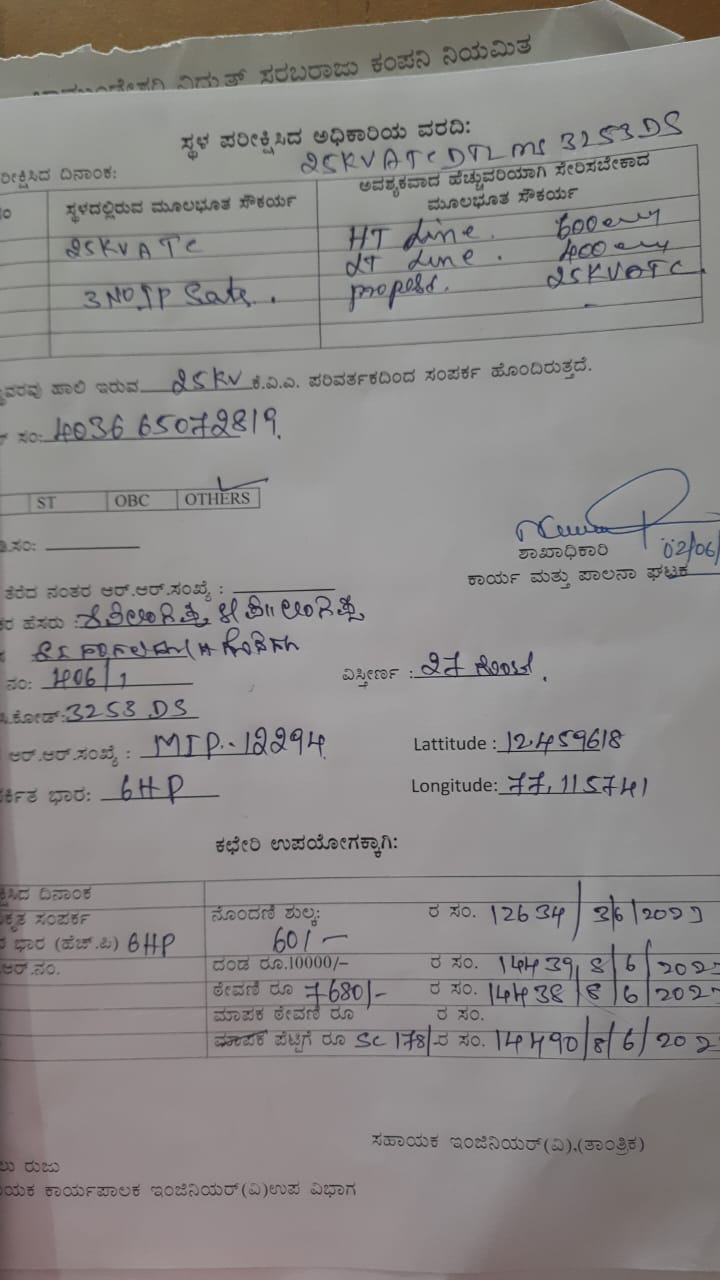 ವಿದ್ಯುತ್ ಸರಬರಾಜು ಕಂಪನಿ ನಿಯಮಿತ
ಸ್ಥಳ ಪರೀಕ್ಷಿಸಿದ ಅಧಿಕಾರಿಯ ವರದಿ:
ರೀಕ್ಷಿಸಿದ ದಿನಾಂಕ: 25KVA TC DTL MS 3253DS
ಸ್ಥಳದಲ್ಲಿರುವ ಮೂಲಭೂತ ಸೌಕರ್ಯ
ಅವಶ್ಯಕವಾದ ಹೆಚ್ಚುವರಿಯಾಗಿ ಸೇರಿಸಬೇಕಾದ
ಮೂಲಭೂತ ಸೌಕರ್ಯ
25KVA TC HT Line. 600
LT Line. 400
3NO IP Sets. 25KVATC
ಹಾಲಿ ಇರುವ 25KV ಕೆ.ವಿ.ಎ. ಪರಿವರ್ತಕದಿಂದ ಸಂಪರ್ಕ ಹೊಂದಿರುತ್ತದೆ.
ಸಂ: 4036 65072819.
ST OBC OTHERS
ಡಿ.ಸಂ:
ಶಾಖಾಧಿಕಾರಿ 02/06/
ಕಾರ್ಯ ಮತ್ತು ಪಾಲನಾ ಘಟಕ
ತೆರೆದ ನಂತರ ಆರ್.ಆರ್.ಸಂಖ್ಯೆ :
ಕರ ಹೆಸರು :
ನಂ: 406/1 ವಿಸ್ತೀರ್ಣ : 27
ಕೋಡ್: 3253 DS
ಆರ್.ಆರ್.ಸಂಖ್ಯೆ : MIP-12294 Lattitude : 12.459618
ರ್ಕಿತ ಭಾರ: 6HP Longitude: 77.115741
ಕಛೇರಿ ಉಪಯೋಗಕ್ಕಾಗಿ:
ಕ್ಷಿಸಿದ ದಿನಾಂಕ
ಕೃತ ಸಂಪರ್ಕ ನೊಂದಣಿ ಶುಲ್ಕ: ರ ಸಂ. 12634/3/6/202
ಭಾರ (ಹೆಚ್.ಪಿ) 6HP 60/-
ಆರ್.ನಂ. ದಂಡ ರೂ.10000/- ರ ಸಂ. 14439/8/6/202
ಠೇವಣಿ ರೂ 7680/- ರ ಸಂ. 14438/8/6/202
ಮಾಪಕ ಠೇವಣಿ ರೂ ರ ಸಂ.
ಮಾಪಕ ಪೆಟ್ಟಿಗೆ ರೂ SC 178/- ರ ಸಂ. 14490/8/6/202
ಸಹಾಯಕ ಇಂಜಿನಿಯರ್(ವಿ),(ತಾಂತ್ರಿಕ)
ರುಜು
ಯಕ ಕಾರ್ಯಪಾಲಕ ಇಂಜಿನಿಯರ್(ವಿ)ಉಪ ವಿಭಾಗ